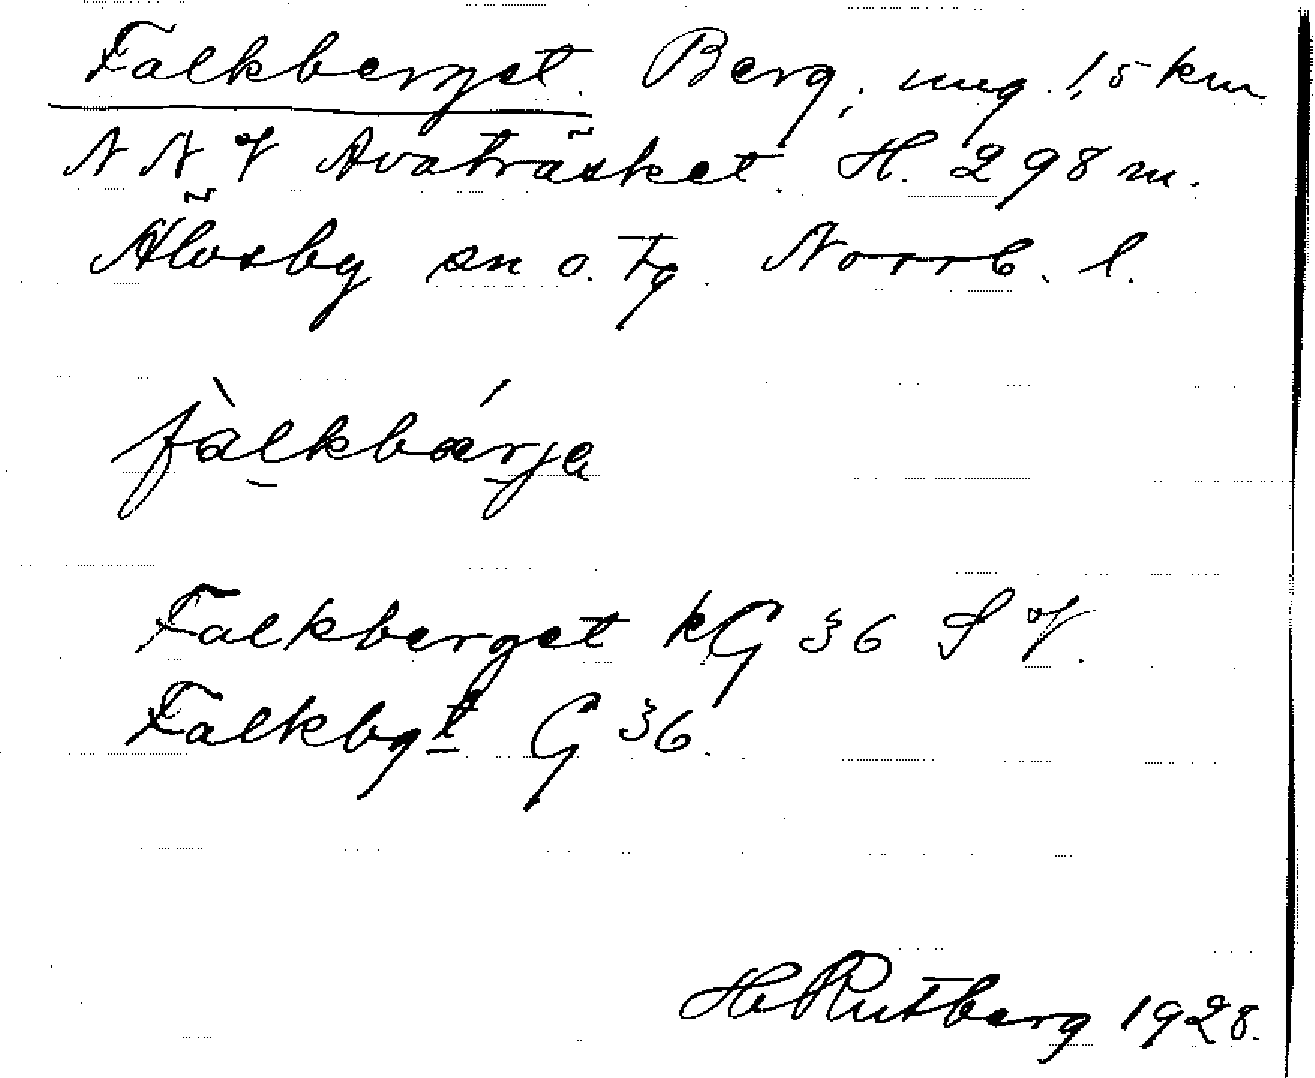 Falkberget. Berg, ung. 1,5 km
N N V Avaträsket. H. 298 m.
Älvsby sn o. tg. Norrb. l.
fàlkbárja
Falkberget kG 36 S V.
Falkbgt G 36.
H Rutberg 1928.